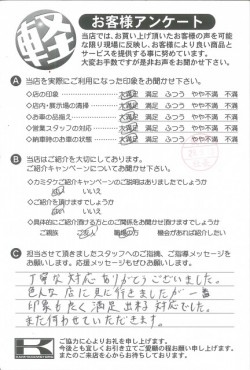 軽
お客様アンケート
当店では、お買い上げ頂いたお客様の声を可能
な限り現場に反映し、お客様により良い商品と
サービスを提供する事に努めています。
大変お手数ですが是非お声をお聞かせ下さい。
Ⓐ 当店を実際にご利用になった印象をお聞かせ下さい。
◇店の印象 大満足 満足 ふつう やや不満 不満
◇店内・展示場の清掃 大満足 満足 ふつう やや不満 不満
◇お車の品揃え 大満足 満足 ふつう やや不満 不満
◇営業スタッフの対応 大満足 満足 ふつう やや不満 不満
◇納車時のお車の状態 大満足 満足 ふつう やや不満 不満
Ⓑ 当店はご紹介を大切にしております。
ご紹介キャンペーンについてお聞かせ下さい。
◇カミタケご紹介キャンペーンのご説明はありましたでしょうか
はい いいえ
◇ご紹介を頂けますでしょうか
はい いいえ
◇具体的にご紹介頂ける方とのご関係をお聞かせ頂けますでしょうか
ご親族 ご友人 職場の方 機会があれば紹介したい
Ⓒ 担当させて頂きましたスタッフへのご指摘、ご指導メッセージを
お願いします。応援メッセージもぜひお願いします。
丁寧な対応ありがとうございました。
色んな店に見に行きましたが一番
印象が良く満足出来る対応でした。
また行かせていただきます。
ご協力に心よりお礼を申し上げます。
今後とも宜しくお引き立てご愛顧の程お願い申し上げます。
またのご来店を心からお待ちしております。